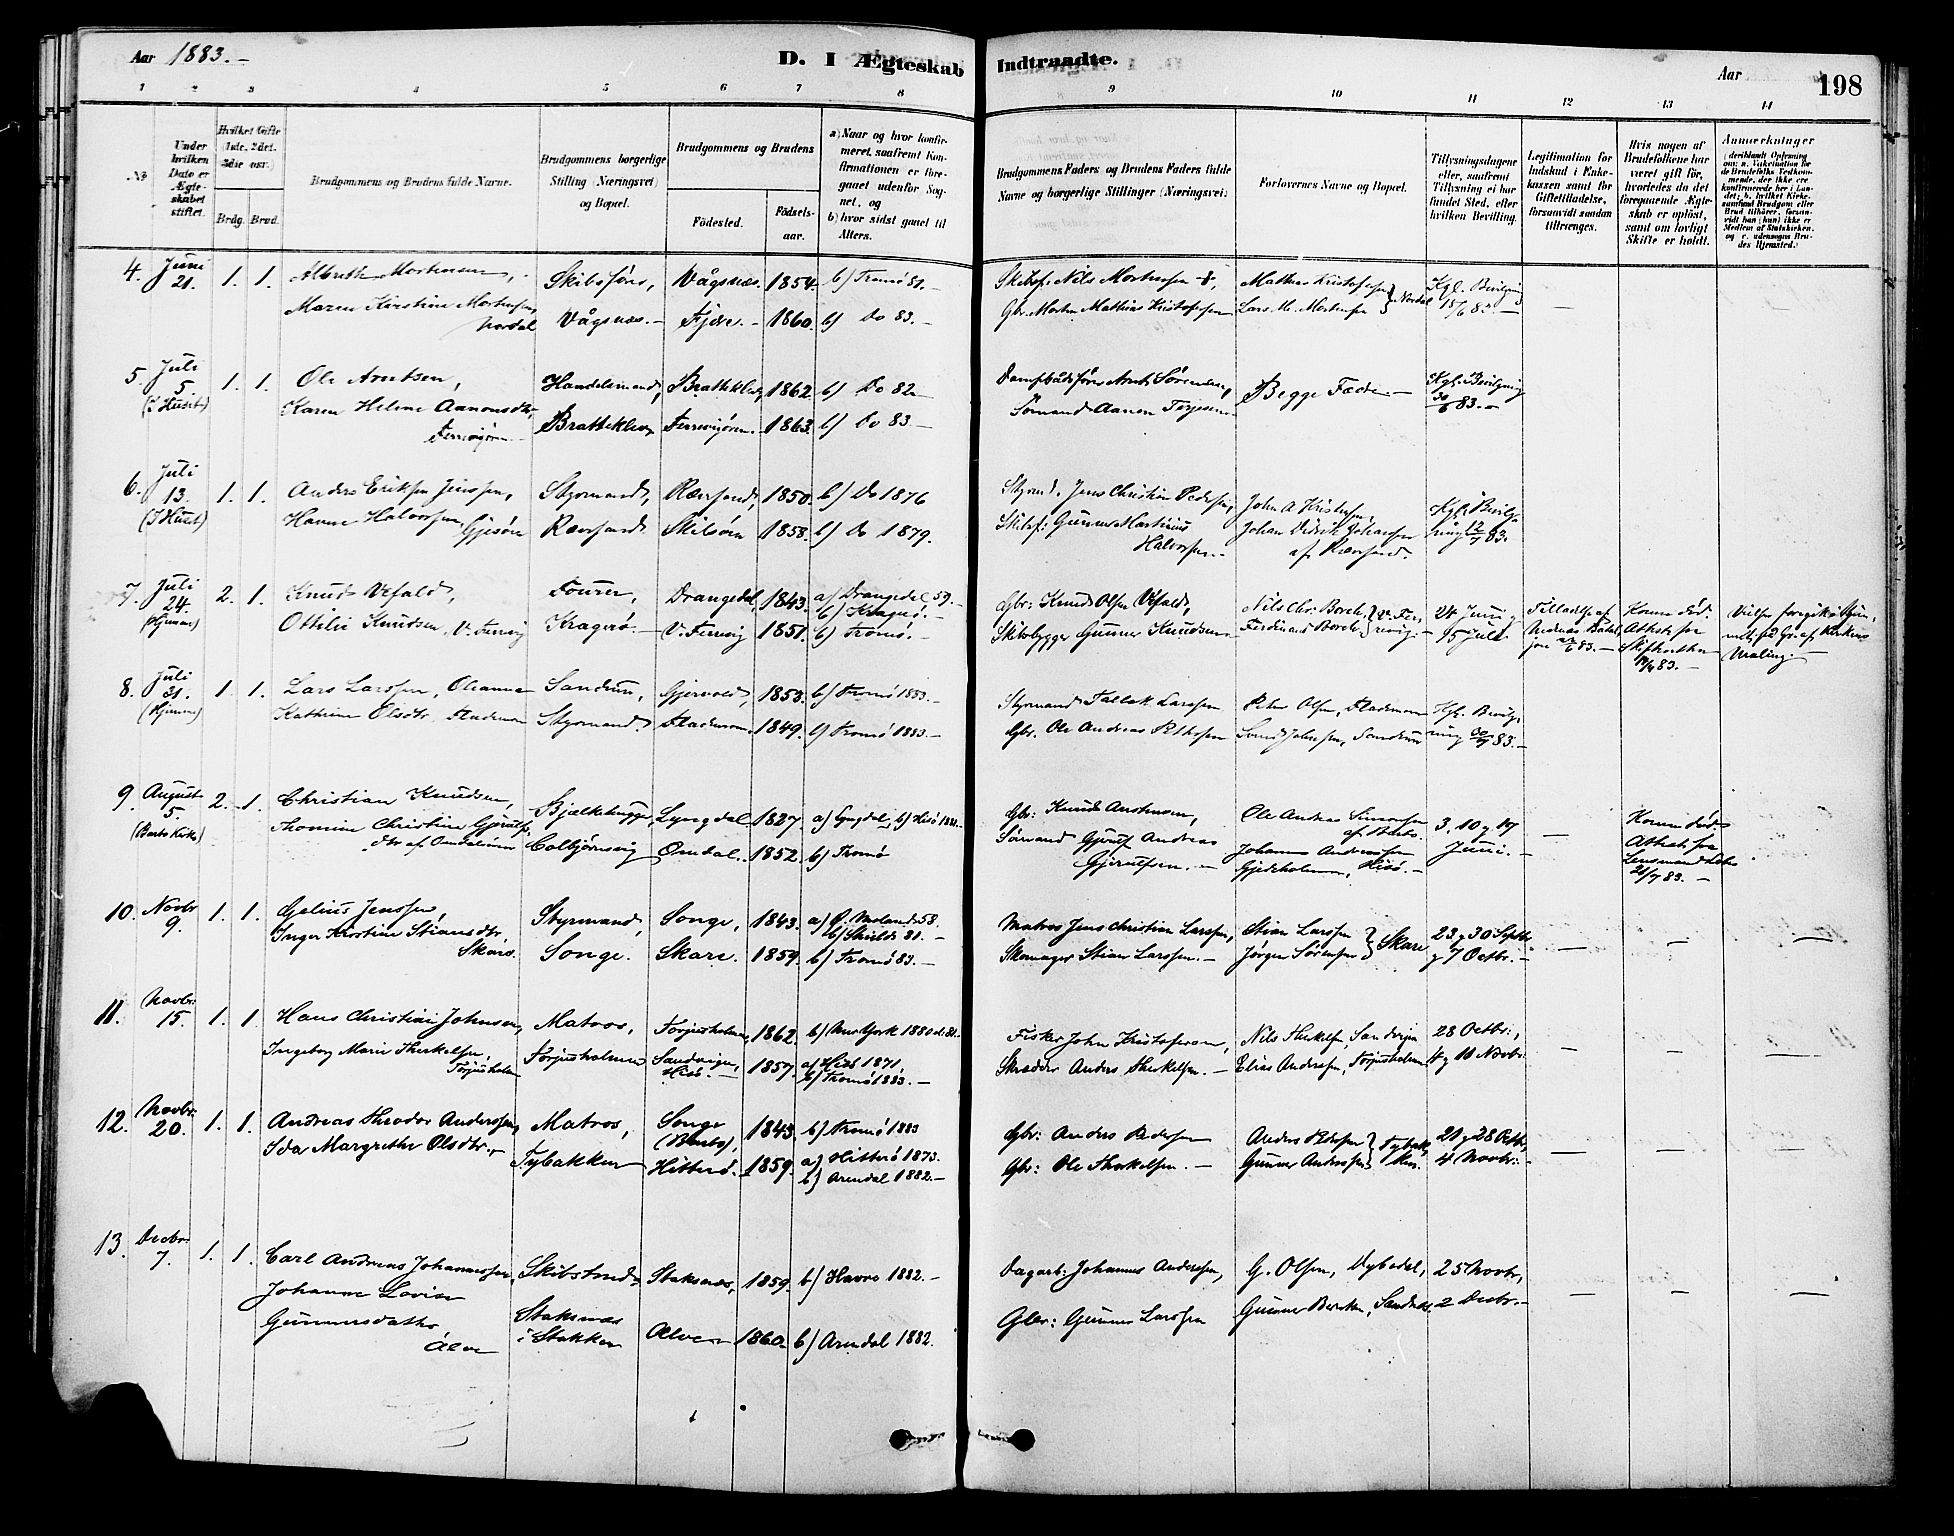 Aar 1883.-
D. I Ægteskab Indtraadte.
Aar
198
1 2 3 4 5 6 7 8 9 10 11 12 13 14
No
Under hvilken Dato er Ægteskabet stiftet.
Hvilket Gifte (1ste, 2det, 3die osv.)
Brdg. Brud.
Brudgommens og Brudens fulde Navne.
Brudgommens borgerlige Stilling (Næringsvei) og Bopæl.
Brudgommens og Brudens
Fødested.
Fødsels-aar.
a) Naar og hvor konfirmeret, saafremt Konfirmationen er foregaaet udenfor Sognet, og
b) hvor sidst gaaet til Alters.
Brudgommens Faders og Brudens Faders fulde Navne og borgerlige Stillinger (Næringsvei).
Forlovernes Navne og Bopæl.
Tillysningsdagene eller, saafremt Tillysning ei har fundet Sted, efter hvilken Bevilling.
Legitimation for Indskud i Enkekassen samt for Giftetilladelse, forsaavidt saadan tiltrænges.
Hvis nogen af Brudefolkene har været gift før, hvorledes da det foregaaende Ægteskab er opløst, samt om lovligt Skifte er holdt.
Anmerkninger
4. Juni 21. 1. 1. Albreth Mortensen, Skibsfører, Vågsnæs. 1854. b) Tromø 81.- Skibsf: Nils Mortensen Mathias Kristofersen Kgl. Bevilgning 15/6 83.- —
Maren Kirstine Mortensen, Nordal Vågsnæs.- Fjære.- 1860. b) Do 83.- Gbr. Morten Mathias Kristofersen Lars M. Mortensen } Nordal
5. Juli 5 (i Huset) 1. 1. Ole Arntsen, Handelsmand, Bratteklev, 1862. b) Do 82.- Dampbådsfører Arnt Sørensen, Begge Fædre.- Kgl. Bevilgning 30/6 83.-
Karen Helene Aanonsdtr, Færvigøren.- Bratteklev Færvigøren.- 1863. b) Do 83.- Sømand Aanon Terjesen
6. Juli 13. (I Huset) 1. 1. Anders Eriksen Jenssen, Styrmand, Revesand, 1850. b) Do 1876 Styrmd. Jens Christian Pedersen, John A Kristensen, Kgl. Bevilgning 12/7 83.
Hanne Halvorsen, Gjesøen Revesand. Skilsøen 1858. b) Do 1879. Skibsf: Gunner Martinius Halvorsen.- Johan Didrik Johansen af Revesand.
7. Juli 24. (Hjemme) 2. 1. Knud Vefald, Tourer, Drangedal, 1843. a) Drangedal 59.- b) Kragerø.- Gbr: Knud Olsen Vefald, Nils Chr: Borch 24 Juni
Ottilie Knudsen, V. Færvig Kragerø.- V. Færvig 1851. b) Tromø.- Skibsbygger Gunner Knudsen Ferdinand Borch } V. Færvig.- 1 og 5 Juli.
Kone død. Attest fra Skifteretten
8. Juli 31. (Hjemme) 1. 1. Lars Larssen, Oleanne Sandum, Gjervold, 1853. b) Tromø 1883.- Styrmand Tallak Larssen Peter Olsen, Flademoen Kgl. Bevilgning 30/7 83.-
Kathrine Olsdtr, Flademoen Styrmand Flademoen. 1849. b) Tromø 1883.- Gbr. Ole Andreas Svend Johnsen, Sandum
9. August 5. (Barbo Kirke) 2. 1. Christian Knudsen, Bjelkehugger, Lyngdal 1827. a) Lyngdal, b) Hisø 1881.- Gbr: Knud Ole Andreas Simonsen af Barbo. 3, 10 og 17 Juni.- — Kone død. Attest fra Lensmand
Thomine Christine Gjerulfsdtr af Omdalsøen Colbjørnsvig Omdal. 1852. b) Tromø Sømand Gjerulf Andreas Gjerulfsen.- Johannes Andreassen Gjedeholmen, Hisø.-
10. Novbr 9. 1. 1. Gelius Jenssen, Styrmand, Songe, 1843. a) Ø. Moland 58. b) Shields 81.- Matros Jens Christian Larssen, Stian Larssen 23 og 30 Septbr. — — —
Inger Kirstine Stiansdtr. Skare. Songe. Skare. 1859. b) Tromø 83.- Skomager Stian Larssen.- Jørgen Sørensen } Skare og 7 Octbr.-
11. Novbr: 15. 1. 1. Hans Christian Johnsen, Matros, Torjusholmen, 1862. b) New York 1880 Fisker John Kristofersen, Nils Therkelsen, Sandvigen 28 Octbr:, — — —
Ingeborg Marie Therkelsen, Torjusholm Torjusholmen Sandvigen, Hisø.- 1857. a) Hisø 1871, b) Tromø 1883.- Skrædder Anders Therkelsen.- Elias Anderssen, Torjusholmen 4 og 11 Novbr:
12. Novbr: 20. 1. 1. Andreas Theodor Anderssen, Matros, Songe (Barbo), 1843. b) Tromø 1883 Gbr: Anders Pedersen Anders Pedersen 21 og 28 Octbr, — — —
Ida Margrethe Olsdtr.- Tybakken Hitterø. 1859. a) Hitterø 1873. b) Arendal 1882.- Gbr: Ole Therkelsen.- Gunner Anderssen } Tybakken. 4 Novbr:-
13. Decbr. 7. 1. 1. Carl Andreas Johannessen, Skibstmd, Staksnæs, 1859. b) Havre 1882.- Dagarb: Johannes Anderssen, G. Olsen, Dybedal, 25 Novbr, — — —
Johanne Lovise Gunnersdatter Alve Staksnæs i Stakken Alve 1860. b) Arendal 1882. Gbr: Gunner Larssen Gunner 2 Decbr.-